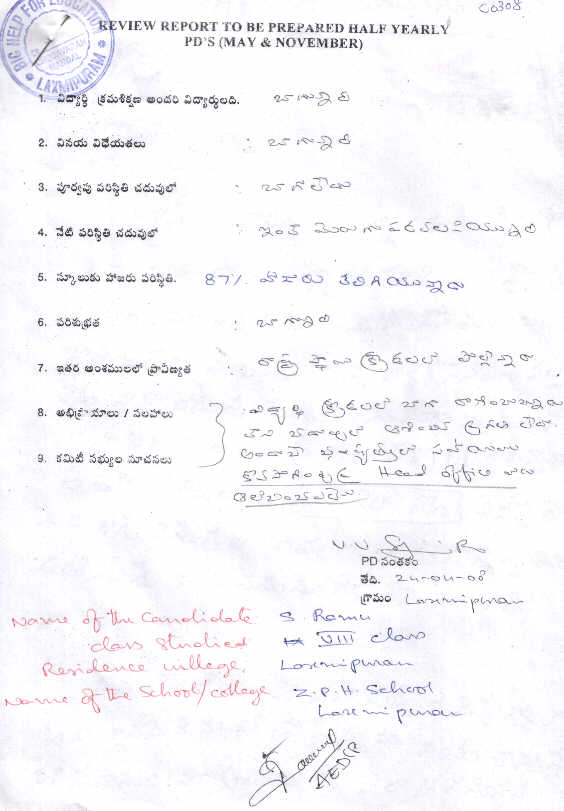 C0308
BIG HELP FOR EDUCATION
LAXMIPURAM
REVIEW REPORT TO BE PREPARED HALF YEARLY
PD'S (MAY & NOVEMBER)
1. విద్యార్థి క్రమశిక్షణ అందరి విద్యార్థులది. బాగున్నది
2. వినయ విధేయతలు : బాగున్నది
3. పూర్వపు పరిస్థితి చదువులో : బాగాలేదు
4. నేటి పరిస్థితి చదువులో : ఇంకా మెరుగు పడవలసియున్నది
5. స్కూలుకు హాజరు పరిస్థితి. 87%. హాజరు కలిగియున్నాడు
6. పరిశుభ్రత : బాగున్నది
7. ఇతర అంశములలో ప్రావీణ్యత : రాష్ట్ర స్థాయి క్రీడలలో
8. అభిప్రాయాలు / సలహాలు : విద్యార్థి క్రీడలలో బాగా
9. కమిటీ సభ్యుల సూచనలు
Head office వారు
ఆలోచించవలెను
PD సంతకం
తేది. 24-04-08
గ్రామం Laxmipuram
Name of the Candidate S. Ramu
class studied VIII class
Residence village, Laxmipuram
Name of the School/college Z.P.H. School
Laxmipuram
AEDP